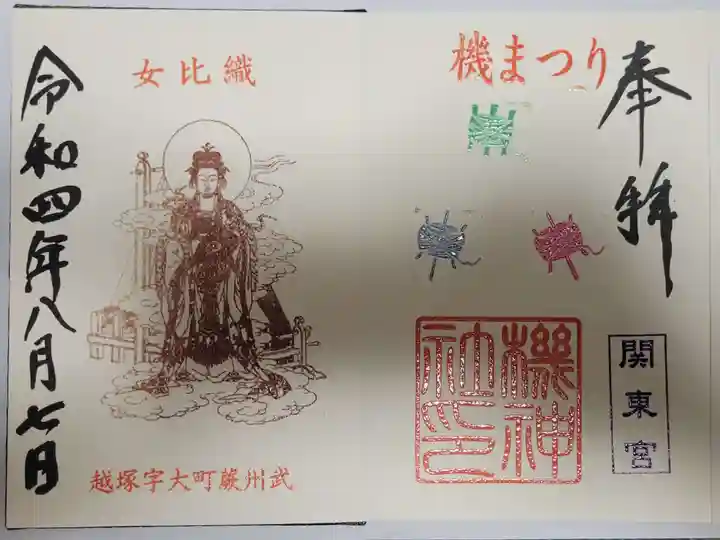 奉拝
機まつり
機神
社印
関東宮
織比女
武州蕨町大字塚越
令和四年八月七日